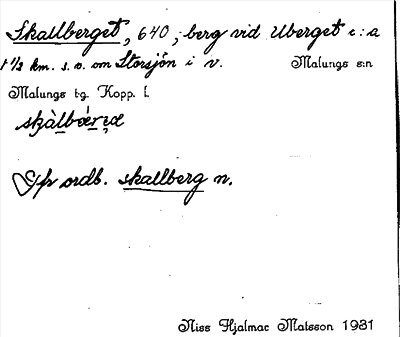 Skallberget, 640, berg vid Uberget c:a
1 1/2 km. s.o. om Storsjön i v. Malungs s:n
Malungs tg. Kopp. l.
skàlbǽrɛ
Jfr ordb. skallberg n.
Niss Hjalmar Matsson 1931